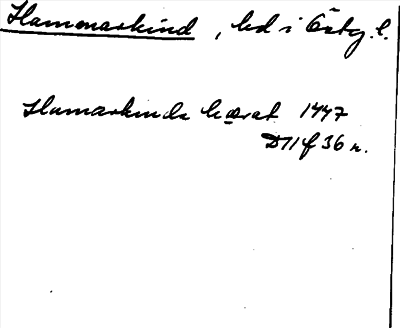 Hammarkind, hd i Östg. l.
Hamarkinda hærat 1447
D 11 f 36 r.